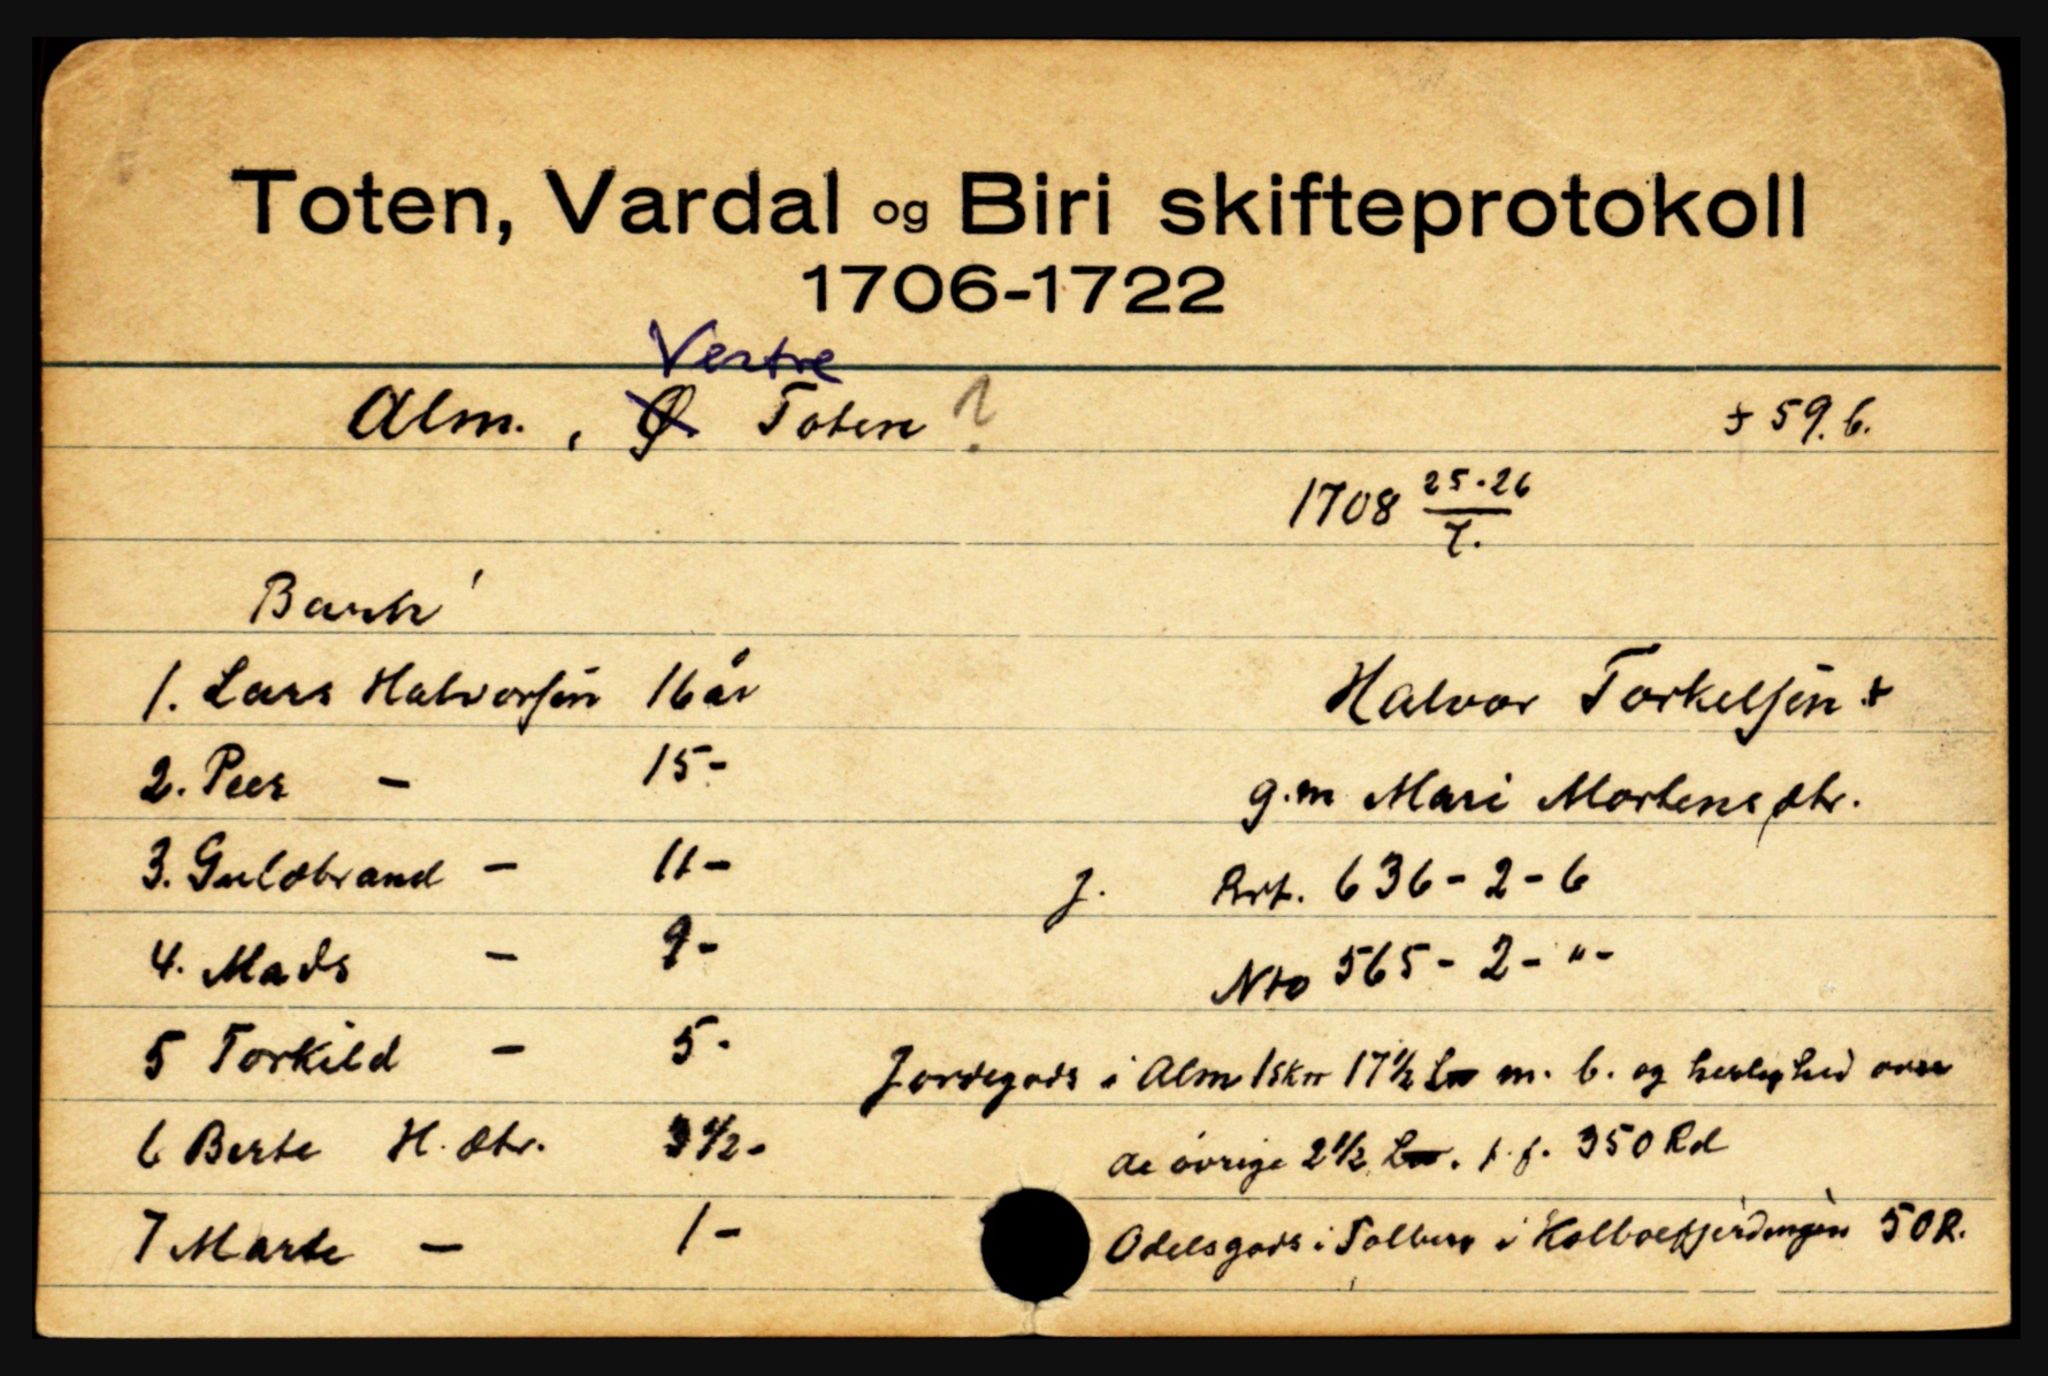 Toten, Vardal og Biri skifteprotokoll
1706-1722
Vestre
Alm. , Ø. Toten ? f 59. b.
1708 25-26/7.
Barn:
1. Lars Halvorsen 16 år
Halvor Torkelsen +
2. Peer - 15 -
g.m Mari Mortensdtr.
3. Guldbrand - 11 -
f. Brt. 636 - 2 - 6
4. Mads - 9 -
Nto 565 - 2 - " -
5 Torkild - 5 -
Jordegods i Alm 1 skn 17 1/2 m. b. og herlighed over
6 Berte H. dtr. 3 1/2 -
de øvrige 2 1/2 . f. f. 350 Rd
7 Marte - 1 -
Odelsgods i Tolberg i Kolboefjerdingen 50 R.